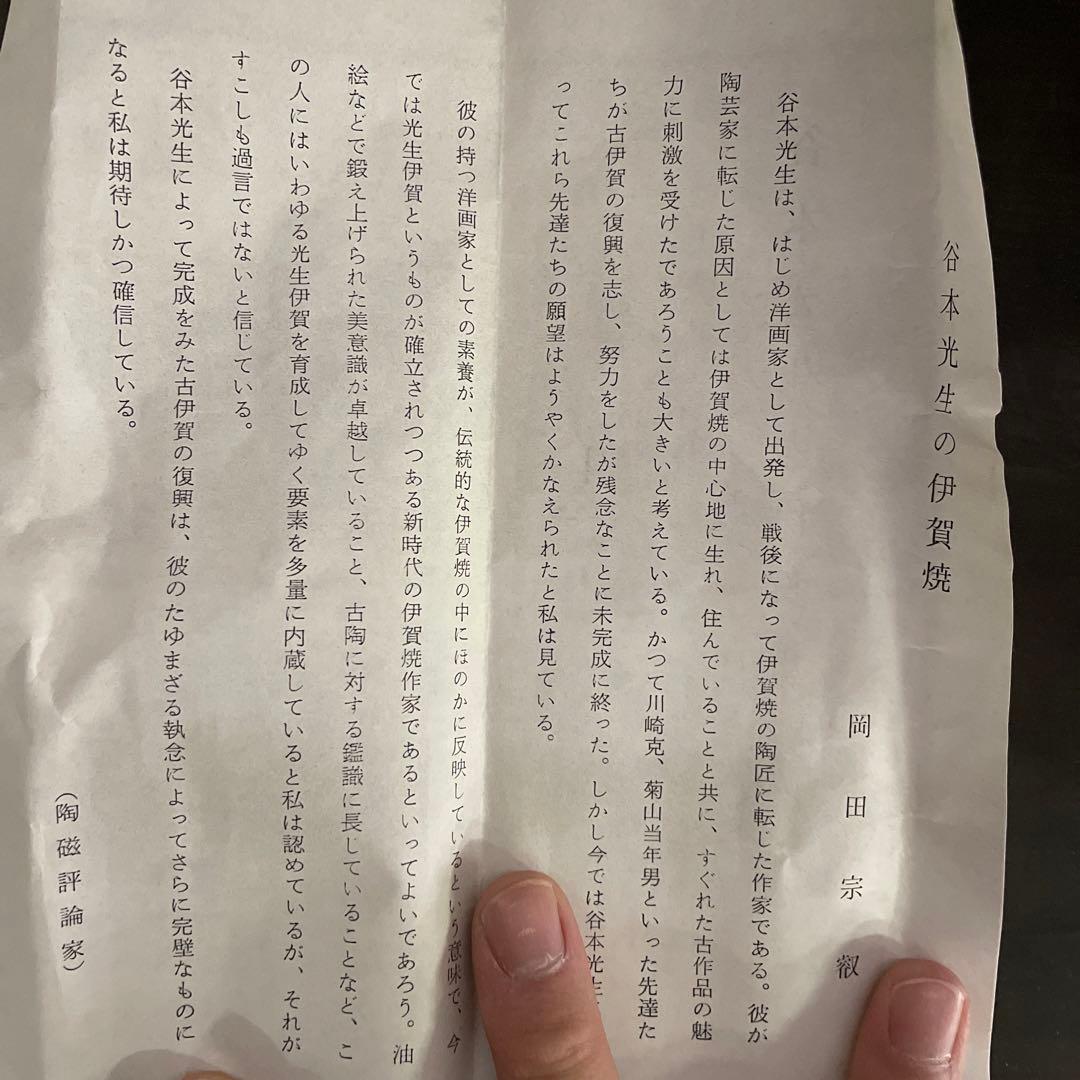 谷本光生の伊賀焼
岡田宗叡
谷本光生は、はじめ洋画家として出発し、戦後になって伊賀焼の陶匠に転じた作家である。彼が
陶芸家に転じた原因としては伊賀焼の中心地に生れ、住んでいることと共に、すぐれた古作品の魅
力に刺激を受けたであろうことも大きいと考えている。かつて川崎克、菊山当年男といった先達た
ちが古伊賀の復興を志し、努力をしたが残念なことに未完成に終った。しかし今では谷本光生
ってこれら先達たちの願望はようやくかなえられたと私は見ている。
彼の持つ洋画家としての素養が、伝統的な伊賀焼の中にほのかに反映しているという意味で、今
では光生伊賀というものが確立されつつある新時代の伊賀焼作家であるといってよいであろう。油
絵などで鍛え上げられた美意識が卓越していること、古陶に対する鑑識に長していることなど、こ
の人にはいわゆる光生伊賀を育成してゆく要素を多量に内蔵していると私は認めているが、それが
すこしも過言ではないと信じている。
谷本光生によって完成をみた古伊賀の復興は、彼のたゆまざる執念によってさらに完璧なものに
なると私は期待しかつ確信している。
（陶磁評論家）